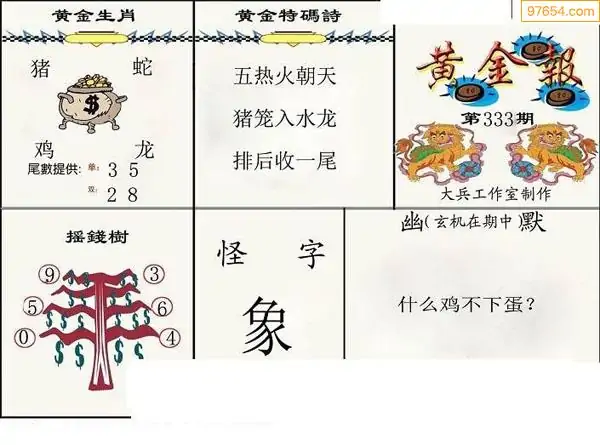 97654.com
黄金生肖
猪 蛇
$
鸡 龙
尾數提供: 单: 3 5
双: 2 8
黄金特碼詩
五热火朝天
猪笼入水龙
排后收一尾
黄金報
第333期
大兵工作室制作
摇錢樹
9 3
5 6
0 4
怪 字
象
幽(玄机在期中)默
什么鸡不下蛋?